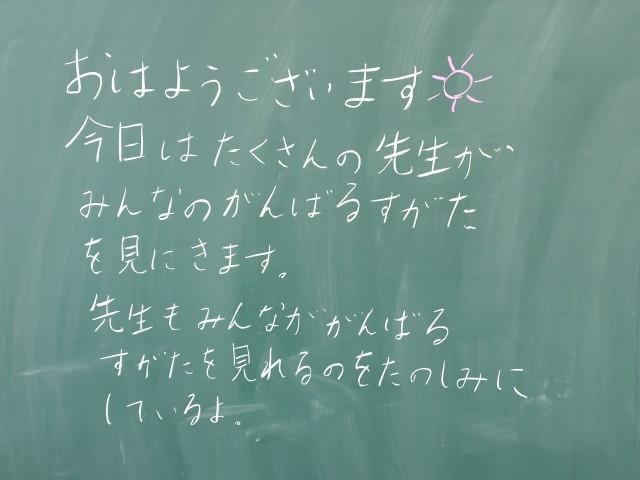 おはようございます
今日はたくさんの先生が
みんなのがんばるすがた
を見にきます。
先生もみんながが​んばる
すがたを見れるのをたのしみに
しているよ。